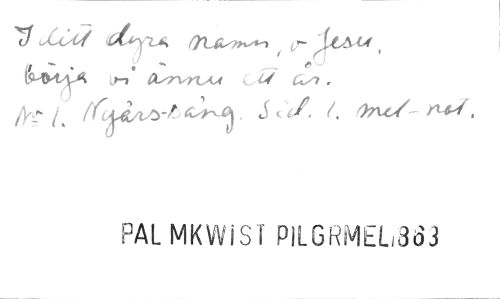 I ditt dyra namn, o Jesu,
börja vi ännu ett år.
No 1. Nyårs-sång. Sid. 1. mel-not.
PALMKWIST PILGRMEL1863